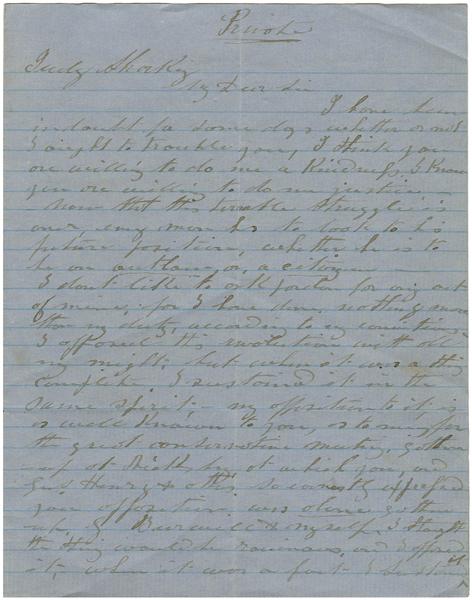 Private
Judy Sharkey
My Dear Sir
I have been
in doubt for some days whether or not
I ought to trouble you, I think you
are willing to do me a kindness, I know
you are willing to do me justice
Now that this terrible struggle is
over, every man has to look to his
future position, whether he is to
be an outlaw or, a citizen
I don't like to ask pardon for any act
of mine, for I have done nothing more
than my duty, according to my convictions
I opposed this revolution with all
my might, but when it was a thing
complete I sustained it in the
same spirit, my opposition to it, is
as well known to you, as to myself
the great conservative meeting, gotten
up at Vicksburg at which you, and
Gus Henry & others so earnestly expressed
your opposition was alone gotten
up, by & myself, I thought
the thing would be ruinous, and I opposed
it, when it was a fact I sustained it